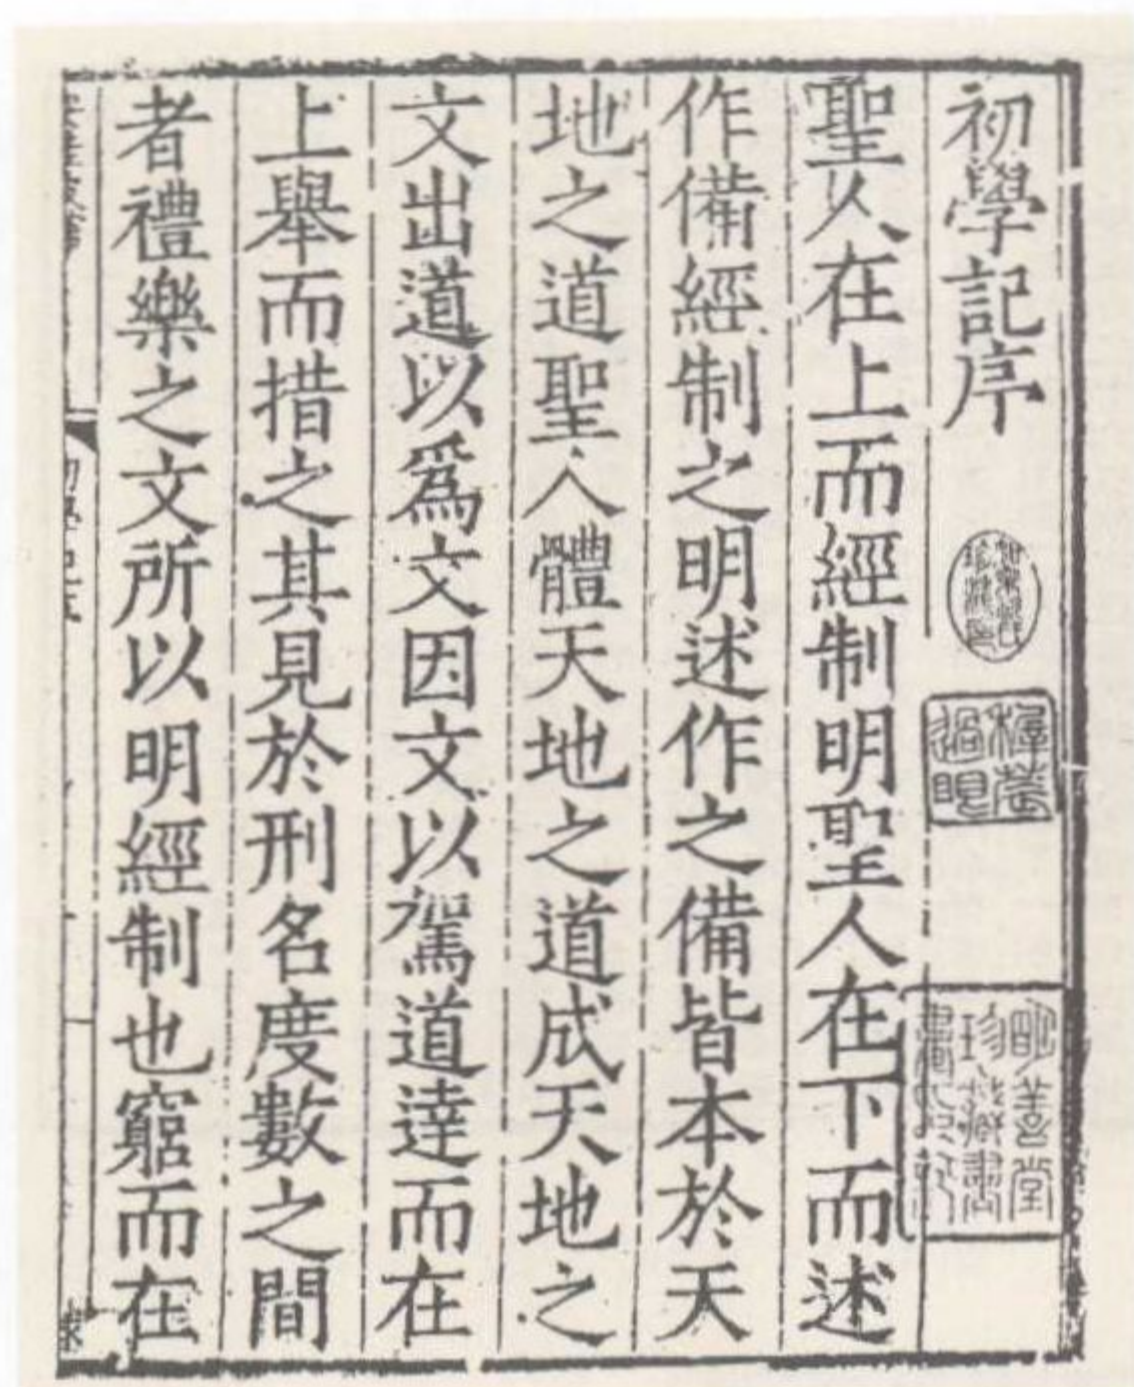 初學記序
樨菴過眼
明善堂珍藏書畫印記
聖人在上而經制明聖人在下而述
作備經制之明述作之備皆本於天
地之道聖人體天地之道成天地之
文出道以為文因文以駕道達而在
上舉而措之其見於刑名度數之間
者禮樂之文所以明經制也窮而在